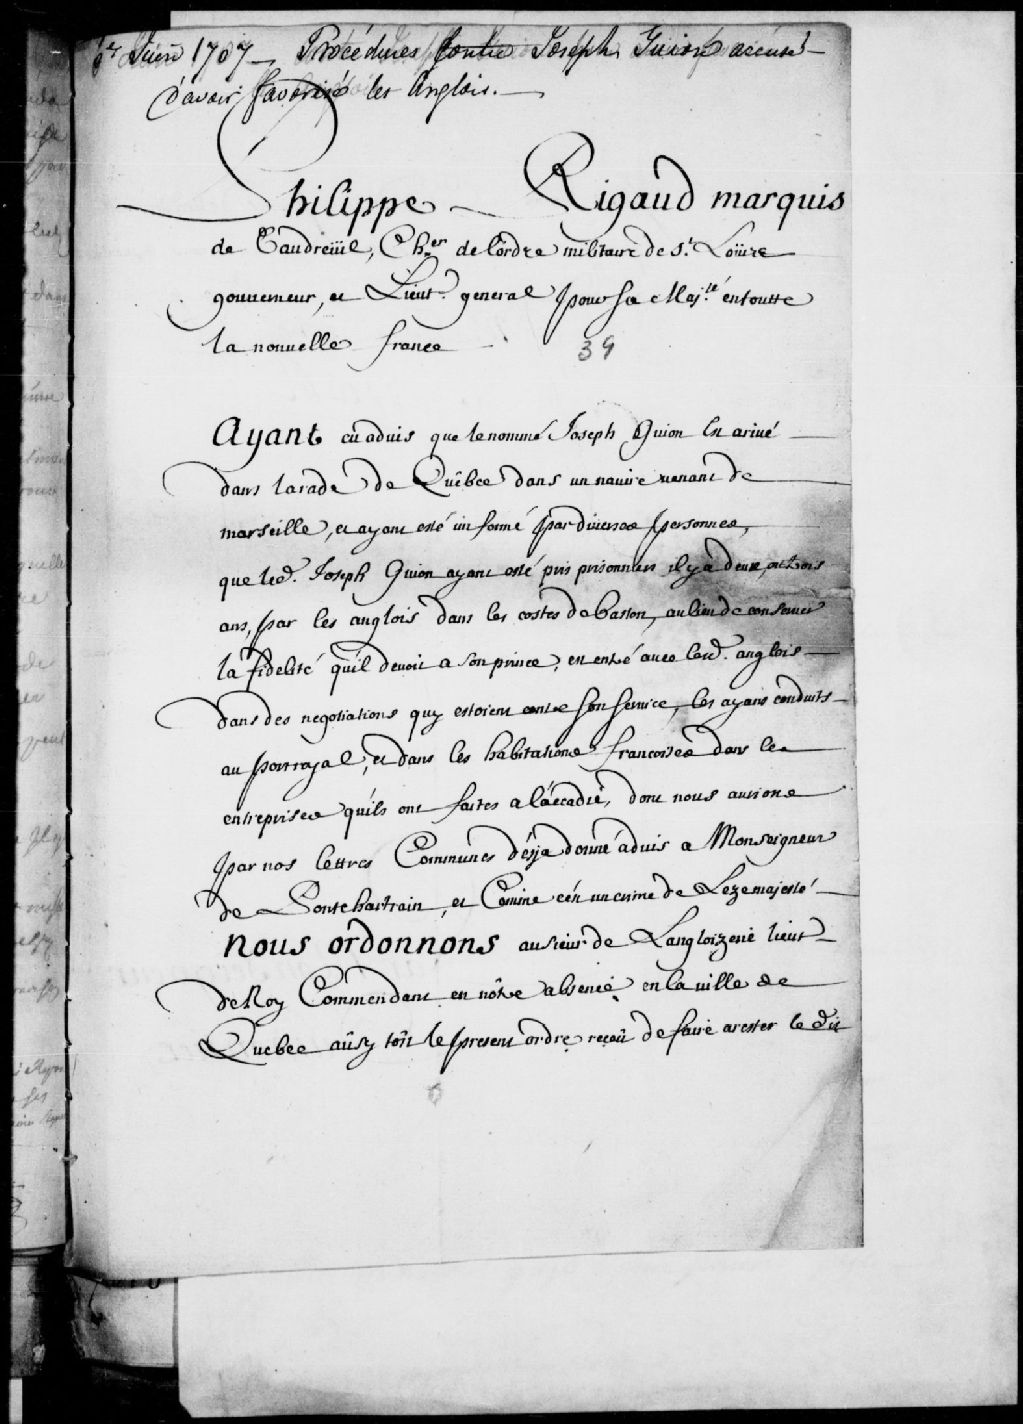 Juin 1707 — Procédures contre Joseph Guion accusé
d'avoir favorisé les Anglois. —
Philippe Rigaud marquis
de Vaudreüil, Cher. de l'ordre militaire de st. Loüis
gouverneur, et Lieut. general pour sa Majté. en toutte
la nouvelle france
39
Ayant eü advis que le nommé Joseph Guion est arivé
dans la rade de Québec dans un navire venant de
marseille, et ayant esté informé par diverses personnes,
que led. Joseph Guion ayant esté pris prisonnier il y a deux, ou trois
ans, par les anglois dans les costes de baston, au lieu de conserver
la fidelité qu'il devoit a son prince, est entré avec lesd. anglois
dans des negotiations quy estoient contre son service, les ayant conduits
au portroyal, et dans les habitations francoises dans les
entreprises qu'ils ont faites a l'accadie, dont nous aurions
par nos lettres Communes désja donné advis a Monseigneur
de Pontchartrain, et Comme c'est un crime de Lezemajesté
nous ordonnons au sieur de Langloizerie lieut
de Roy Commendant en nôtre absence en la ville de
Québec aüsy tôst le present ordre reçeü de faire arester le dit